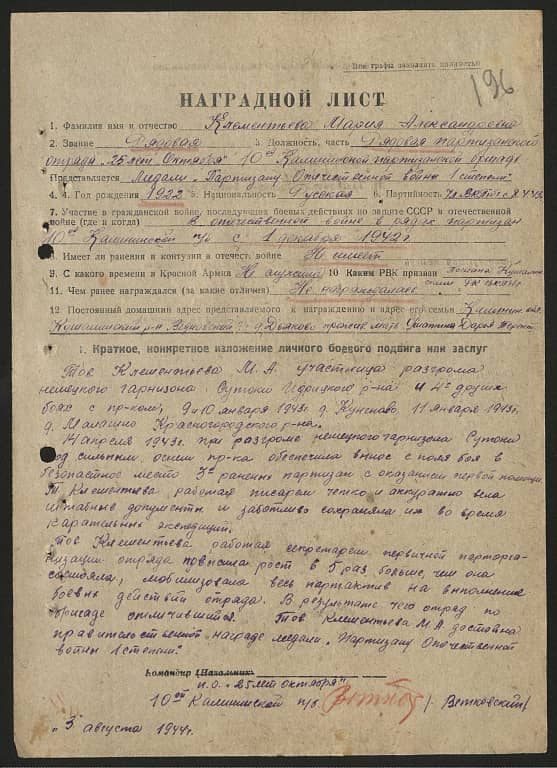 Все графы заполнять полностью
196
НАГРАДНОЙ ЛИСТ
1. Фамилия имя и отчество Клементьева Мария Александровна
2. Звание Рядовая 3. Должность, часть Рядовая партизанский
отряда "25 лет Октября" 10ой Калининской партизанской бригады
Представляется Медали "Партизану Отечественной войны 1 степени"
4. Год рождения 1922 5. Национальность Русская 6. Партийность
7. Участие в гражданской войне, последующих боевых действиях по защите СССР и отечественной
войне (где и когда) В отечественной войне в рядах партизан
10ой Калининской п/б с 1 декабря 1942 г.
8. Имеет ли ранения и контузии в отечест. войне Не имеет
9. С какого времени в Красной Армии Не служила 10 Каким РВК призван
11. Чем ранее награждался (за какие отличия) Не награждалась
12. Постоянный домашний адрес представляемого к награждению и адрес его семьи
Кушалинский р-н д. Дьяково проживает мать Дарья
1. Краткое, конкретное изложение личного боевого подвига или заслуг
Тов Клементьева М. А. участница разгрома
немецкого гарнизона Сутоки Идрицкого р-на и 4х других
боях с пр-ком; 9 и 10 января 1943г. д. Кунсково, 11 января 1943г.
д. Малашино Красногородского р-на.
14 апреля 1943г. при разгроме немецкого гарнизона Сутоки
под сильным огнем пр-ка обеспечила вынос с поля боя в
безопастное место 3х раненых партизан с оказанием первой помощи.
Т Клементьева, работая писарем четко и аккуратно вела
штабные документы и заботливо сохраняла их во время
карательных экспедиций.
Тов Клементьева работая секретарем первичной парторга-
низации отряда повысила рост в 5 раз больше, чем она
, мобилизовала весь партактив на выполнение
боевых действий отряда. В результате чего отряд по
бригаде отличившийся. Тов Клементьева М. А. достойна
правительственной награде медали "Партизану Отечественной
войны 1 степени."
Командир (Начальник
п.о. "25 лет октября"
10ой Калининской п/б /Ветковский/
"3" августа 1944г.